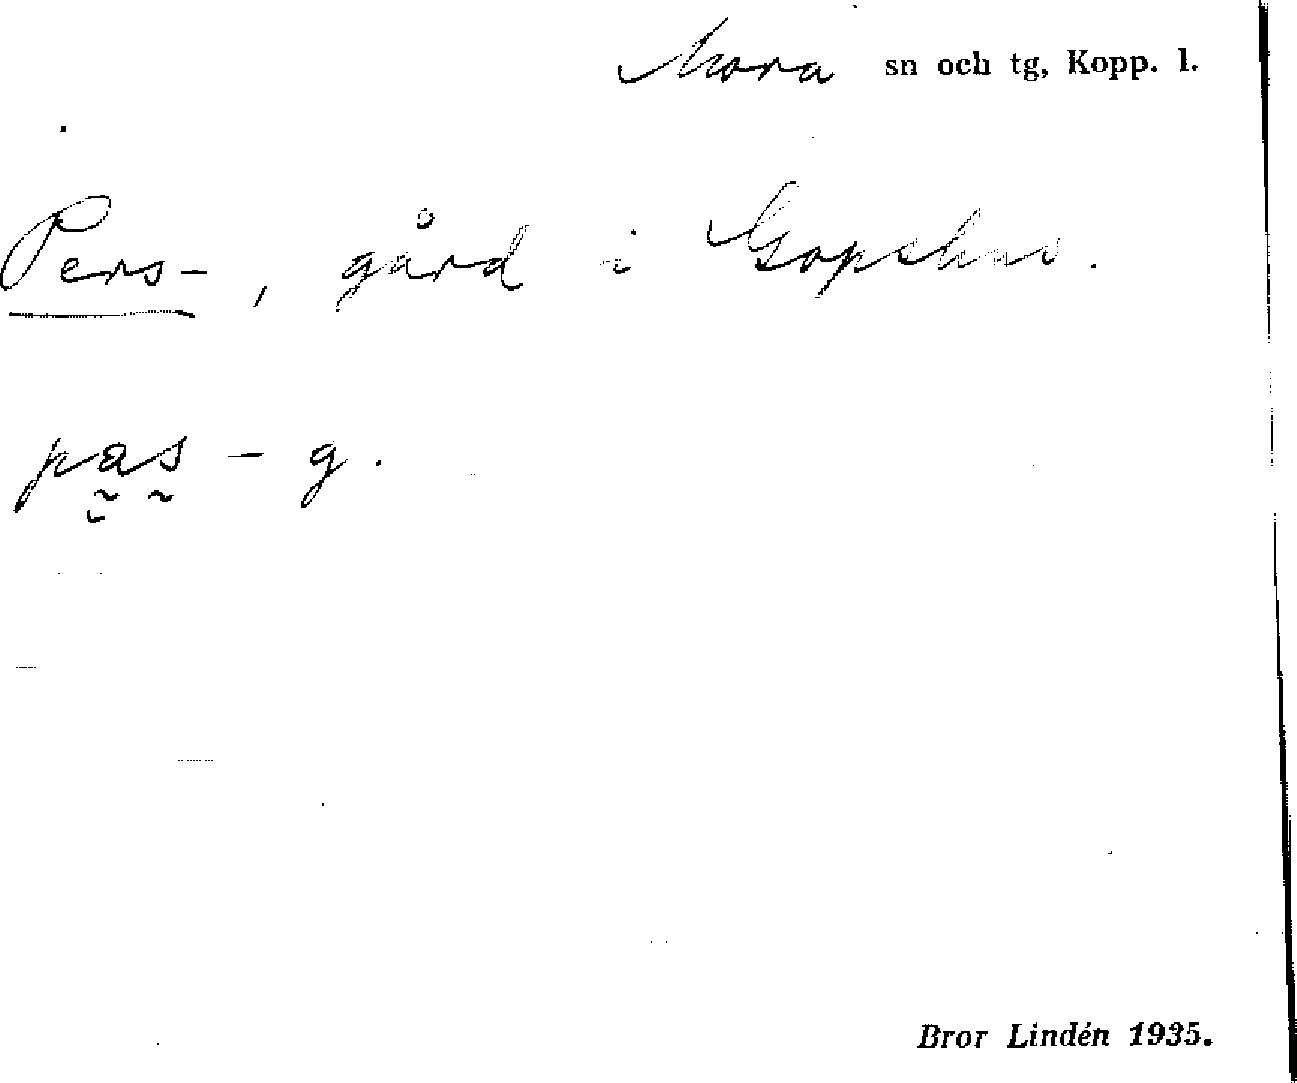 Mora sn och tg, Kopp. l.
Pers-, gård i Gopshus.
pas - g.
Bror Lindén 1935.